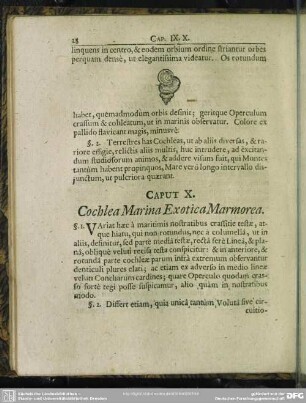 28 CAP. IX. X.
linquens in centro, & eodem orbium ordine striantur orbes
perquam denuè, ut elegantissima videatur. Os rotundum
habet, quemadmodum orbis desinit; geritque Operculum
crassum & cohleatum, ut in marinis observatur. Colore ex
pallido flavicant magis, minusvè.
§. 2. Terrestres has Cochleas, ut ab aliis diversas, & ra-
riore effigie, relictis aliis multis, huc intrudere, ad excitan-
dum studiosorum animos, & addere visum fuit, qui Montes
tantùm habent propinquos, Mare verò longo intervallo dis-
junctum, ut pulcriora quærant.
CAPUT X.
Cochlea Marina Exotica Marmorea.
§. 1. VArias hæc à maritimis nostratibus crassitie testæ, at-
que hiatu, qui non rotundus, nec a columellâ, ut in
aliis, desinitur, sed parte mediâ testæ, rectâ ferè lineâ, & pla-
nâ, obliquè veluti recisa testa conspicitur: & in anteriore, &
rotundâ parte cochleæ parum infrà extremum observantur
denticuli plures elati; ac etiam ex adverso in medio lineæ
velut Concharum cardines; quare Operculo quodam cras-
so fortè tegi posse suspicamur, alio quàm in nostratibus
modo.
§. 2. Differt etiam, quia unicâ tantùm Volutâ sive cir-
cuitio-